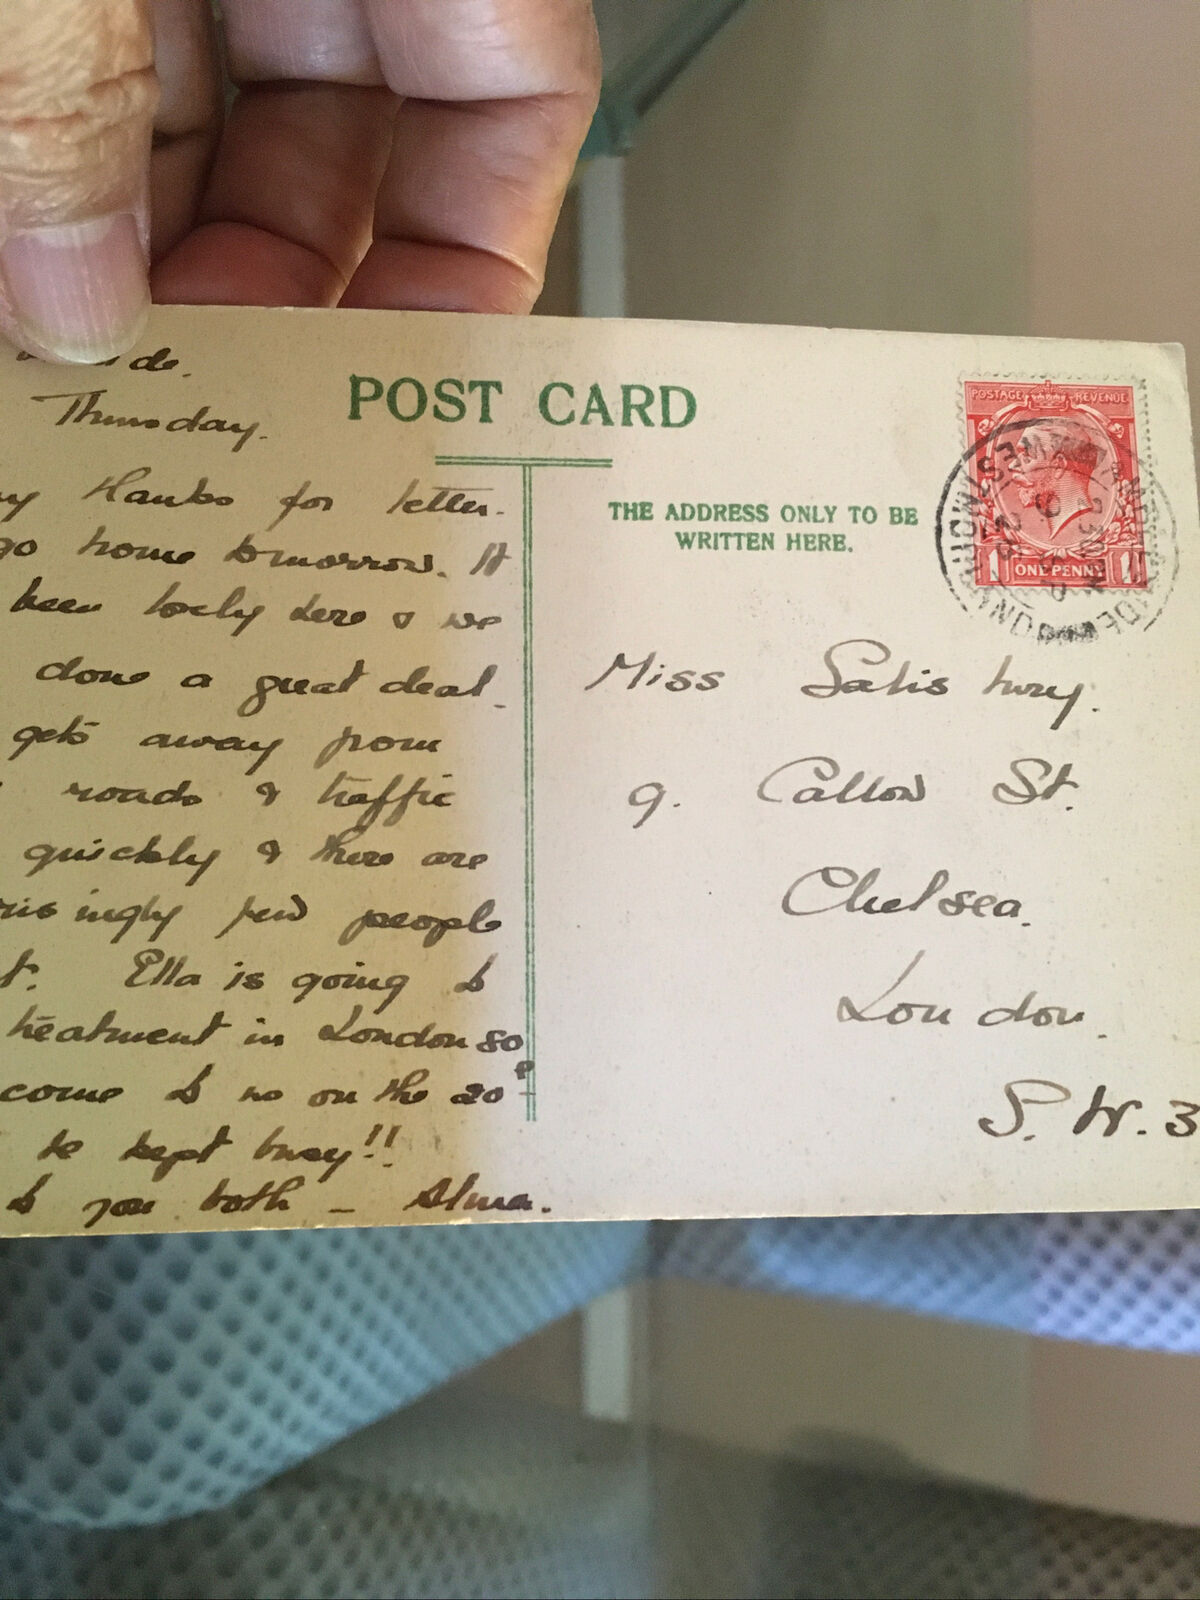 de.
Thursday.
Thanks for letter.
go home tomorrow. It
been lovely here & we
done a great deal.
gets away from
roads & traffic
quickly & there are
few people
Ella is going to
treatment in London so
come to us on the 20th
be kept busy!!
to you both - Alma.
POST CARD
THE ADDRESS ONLY TO BE
WRITTEN HERE.
POSTAGE REVENUE
1 ONE PENNY 1
Miss Salisbury.
9. Callow St.
Chelsea.
London.
S.W.3